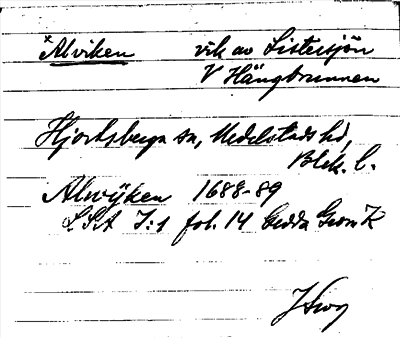 ×Alviken vik av Listersjön
V Hängbrunnen
Hjortsberga sn, Medelstads hd,
Blek. l.
Alwijken 1688-89
LSA I:1 fol. 14 Gedda Geom K